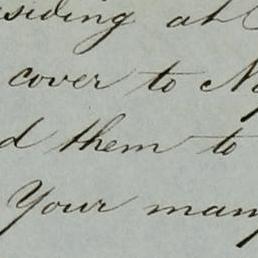 siding at
cover to
them to
Your man